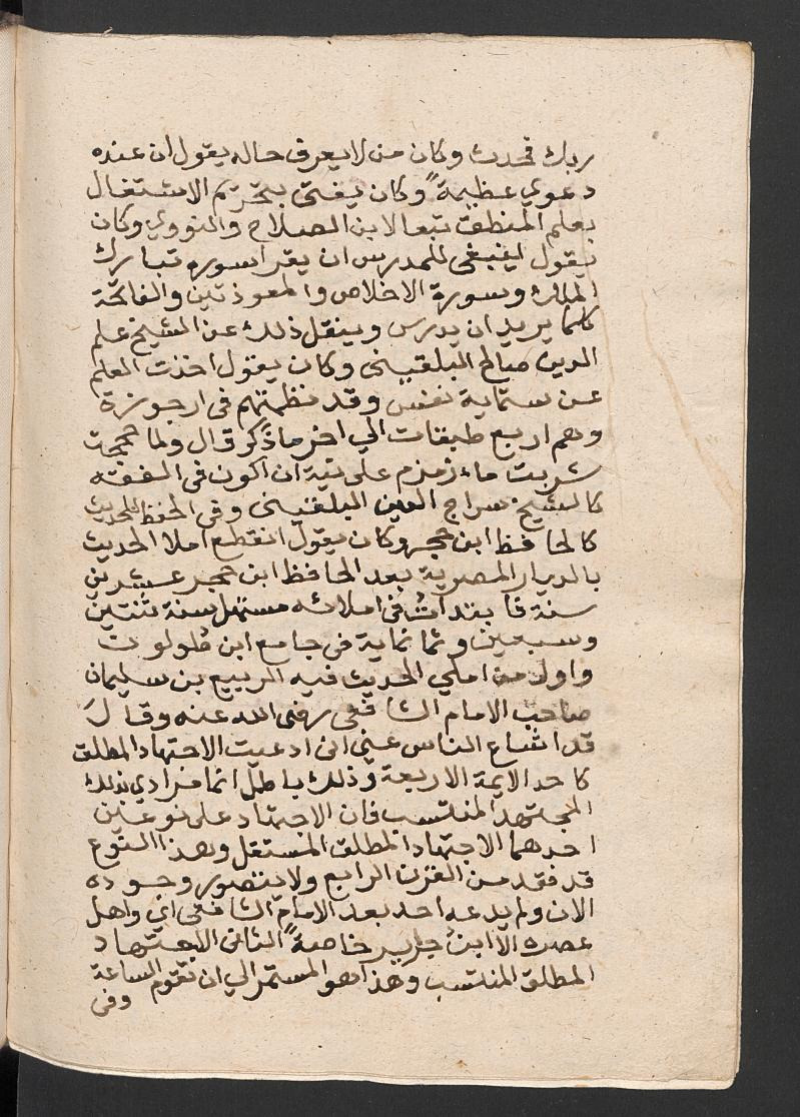 ربك فحدث وكان من لا يعرف حاله يقول ان عنده
دعوي عظيمة وكان يفتى بتحريم الاشتغال
بعلم المنطق تبعا لابن الصلاح والنووي وكان
يقول ينبغى للمدرس ان يقرا سورة تبارك
الملك وسورة الاخلاص والمعوذتين والفاتحة
كلما يريد ان يدرس وينقل ذلك عن الشيخ علم
الدين صالح البلقينى وكان يقول اخذت العلم
عن ستماية نفس وقد نظمتهم فى ارجوزة
وهم اربع طبقات الي اخر ما ذكر قال ولما حججت
شربت ماء زمزم على نية ان اكون فى الفقه
كالشيخ سراج الدين البلقينى وفى الحفظ للحديث
كالحافظ ابن حجر وكان يقول انقطع املا الحديث
بالديار المصرية بعد الحافظ ابن حجر عشرين
سنة فابتدات فى املائه مستهل سنة ثنتين
وسبعين وثمانماية فى جامع ابن طولون
واول من املي الحديث فيه الربيع بن سليمان
صاحب الامام الشافعى رضى الله عنه وقال
قد اشاع الناس عني انى ادعيت الاجتهاد المطلق
كاحد الايمة الاربعة وذلك باطل انما مرادي بذلك
المجتهد المنتسب فان الاجتهاد على نوعين
احدهما الاجتهاد المطلق المستقل وهذا النوع
قد فقد من القرن الرابع ولا يتصور وجوده
الان ولم يدعه احد بعد الامام الشافعى اي واهل
عصره الا ابن جرير خاصة الثانى الاجتهاد
المطلق المنتسب وهذا هو المستمر الي ان تقوم الساعة
وفى